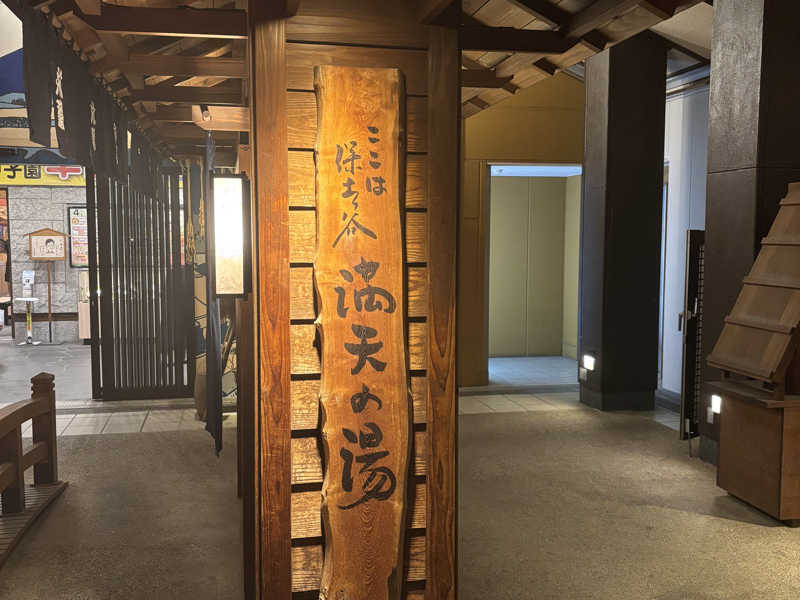 ここは
保土ヶ谷
満天の湯
子園